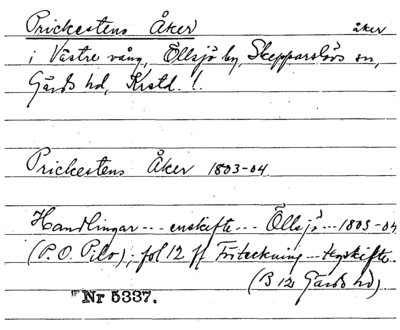 Prickestens Åker åker
i Västre vång, Öllsjö by, Skepparslövs sn,
Gärds hd, Krstd. l.
Prickestens Åker 1803-04
Handlingar --- enskifte --- Öllsjö --- 1803-04
(P. O. Pilo); fol 12 ff Förteckning --- tegskifte.
(B 12 Gärds hd)
Nr 5337.